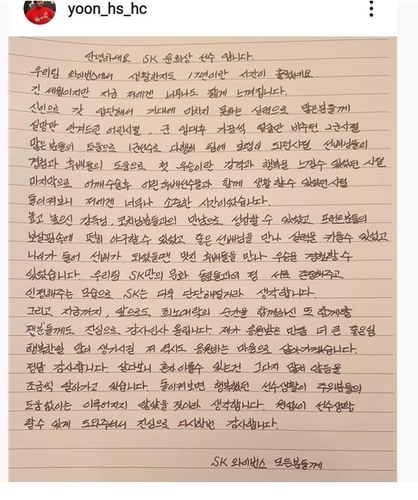 yoon_hs_hc
안녕하세요 SK 윤희상 선수 입니다.
우리팀 와이번스에서 생활한지도 17년이란 시간이 흘렀네요
긴 세월이지만 지금 저에겐 너무나도 짧게 느껴집니다.
신인으로 갓 입단해서 기대에 미치지 못하는 실력으로 많은분들께
실망만 안겨드린 어린시절, 군 입대후
많은분들의 도움으로 1군선수로
경험과 후배들의 도움으로 첫 우승이란 감격과 행복을 느낄수 있었던 시절
마지막으로 어깨수술후 어린후배선수들과 함께 생활 할수 있었던시절
돌이켜보니 저에겐 너무나 소중한 시간이었습니다.
보고 싶으신 감독님, 코치님분들과의 만남으로 성장할 수 있었고 프런트분들의
보살핌속에 편히 야구할수 있었고 좋은 선배님을 만나 실력을 키울수 있었고
나이가 들어 선배가 되었을땐 멋진 후배들을 만나 우승을 경험할수
있었습니다. 우리팀 SK만의 문화 동료들과의 정 서로 존중해주고
인정해주는 모습으로 SK는 더욱 단단해질거라 생각합니다.
그리고 지금까지, 앞으로도 희노애락의 순간을 함께하신 또 함께할
팬분들께도 진심으로 감사인사 올립니다. 제가 응원받은 만큼 더 큰 좋은일
행복한일 많이 생기시길 저 역시도 응원하는 마음으로 살아가겠습니다.
정말 감사합니다. 살다보니 혼자 이룰수 있는건 그다지 많지 않음을
조금씩 알아가고 있습니다. 돌이켜보면 행복했던 선수생활이 주위분들의
도움없이는 이루어지지 않았을 것이라 생각합니다. 선수생활
할수 있게 도와주셔서 진심으로 다시한번 감사합니다.
SK 와이번스 모든분들께